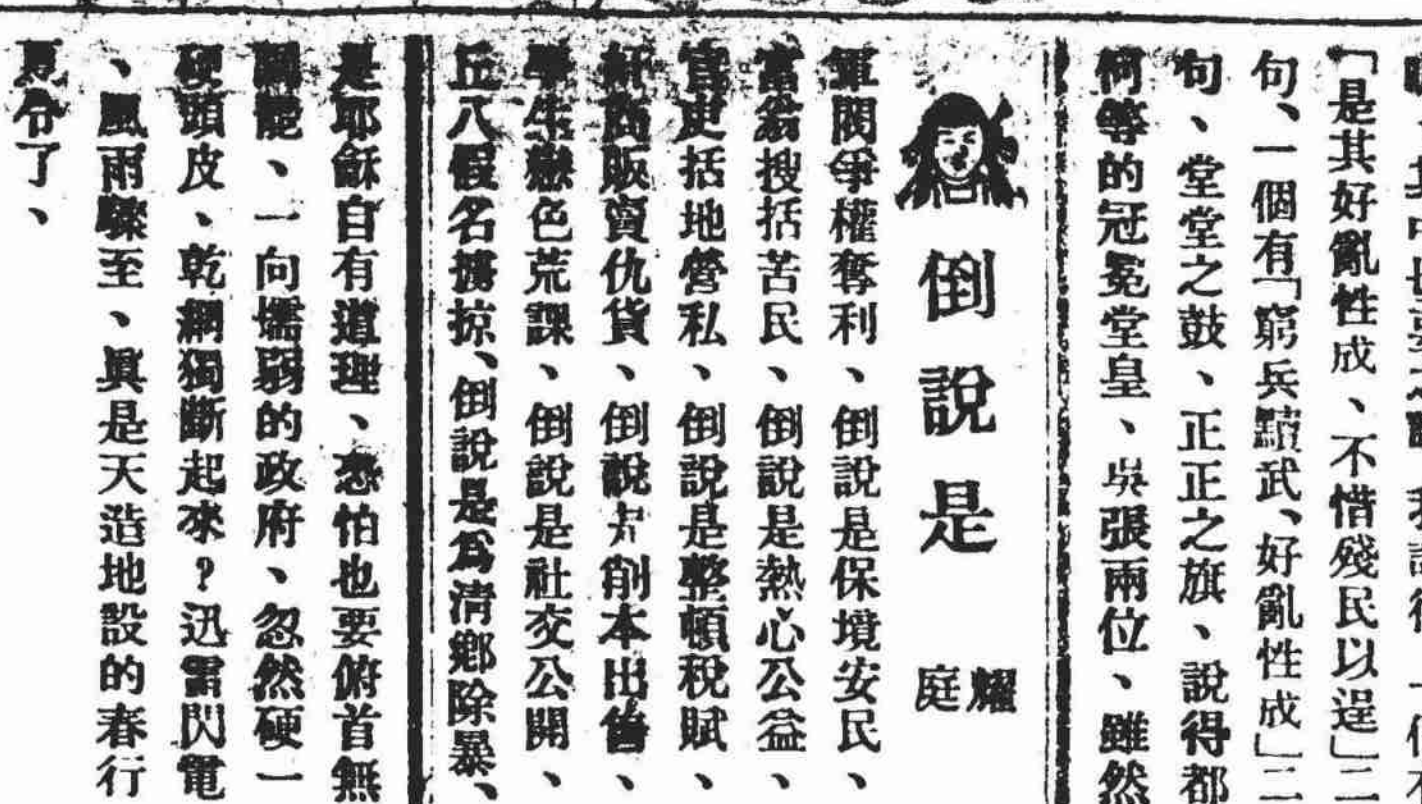 「是其好亂性成、不惜殘民以逞」二
句、一個有「窮兵黷武、好亂性成」二
句、堂堂之鼓、正正之旗、說得都
何等的冠冕堂皇、吳張兩位、雖然
倒說是
耀庭
軍閥爭權奪利、倒說是保境安民、
富翁搜括苦民、倒說是熱心公益、
官吏括地營私、倒說是整頓稅賦、
奸商販賣仇貨、倒說是削本出售、
學生戀色荒課、倒說是社交公開、
丘八假名擄掠、倒說是爲清鄉除暴、
是耶穌自有道理、恐怕也要俯首無
一向懦弱的政府、忽然硬一
硬頭皮、乾綱獨斷起來?迅雷閃電
、風雨驟至、眞是天造地設的春行
夏令了、